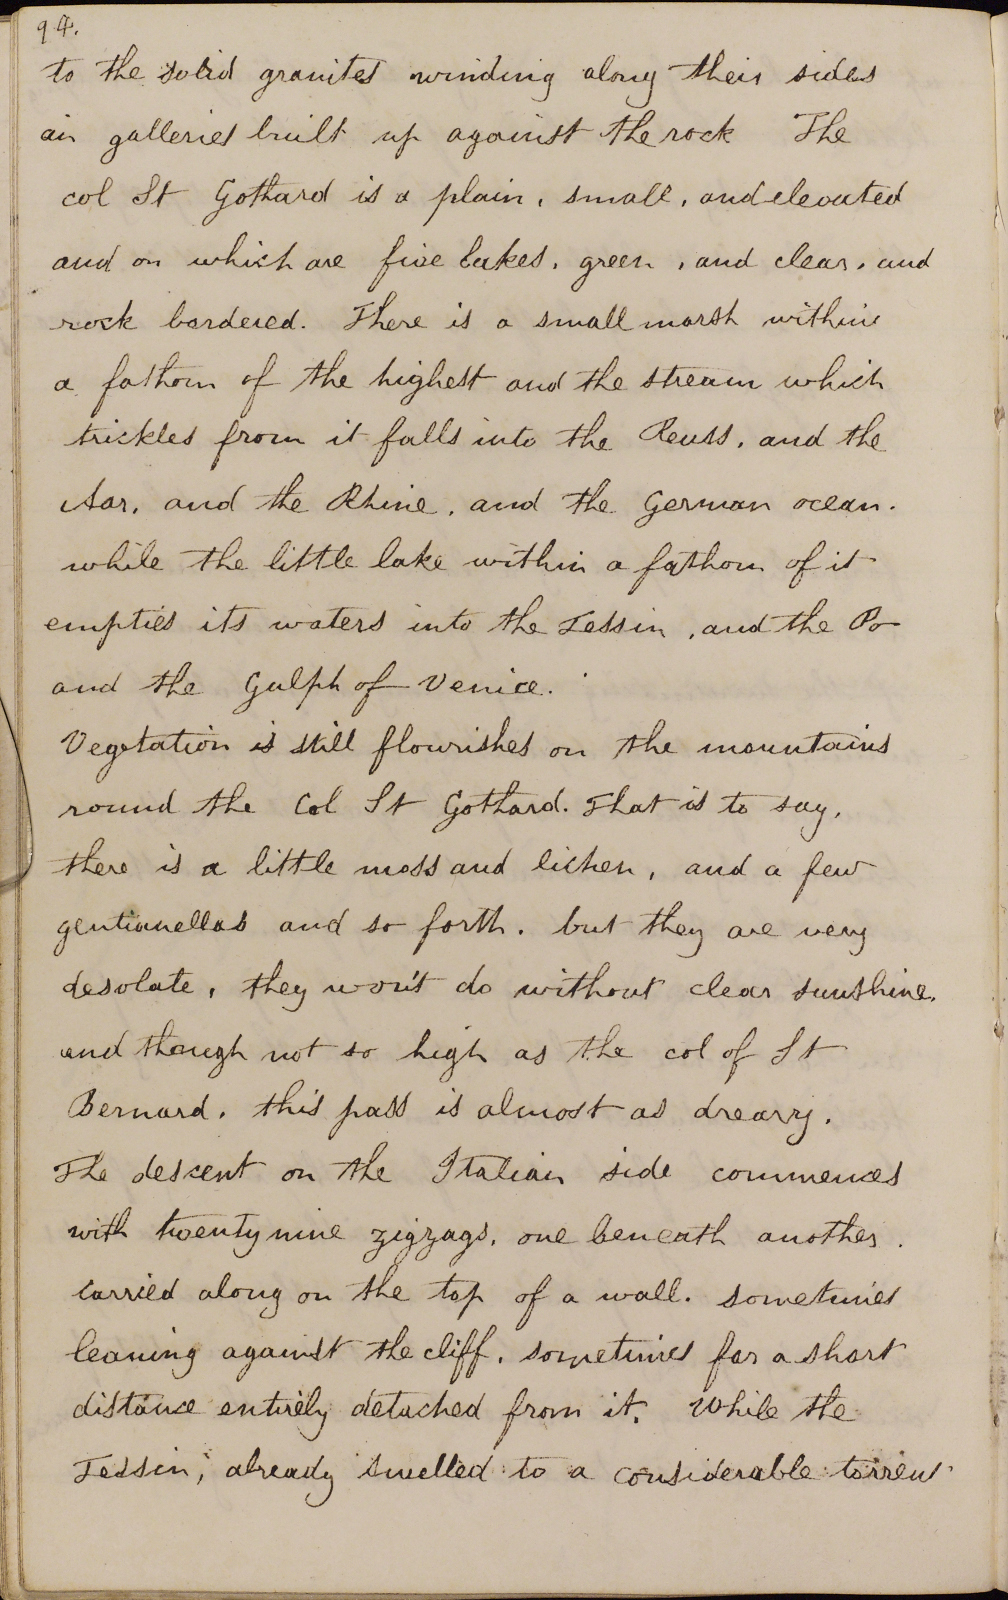 94.
to the solid granites winding along their sides
in galleries built up against the rock The
col St Gothard is a plain, small, and elevated
and on which are five lakes, green, and clear, and
rock bordered. There is a small marsh within
a fathom of the highest and the stream which
trickles from it falls into the Reuss, and the
Aar, and the Rhine, and the German ocean.
while the little lake within a fathom of it
empties its waters into the Tessin, and the Po
and the Gulph of Venice.
Vegetation is still flourishes on the mountains
round the Col St Gothard. That is to say,
there is a little moss and lichen, and a few
gentianellas and so forth. but they are very
desolate, they won't do without clear sunshine,
and though not so high as the col of St
Bernard, this pass is almost as dreary.
The descent on the Italian side commences
with twenty nine zigzags, one beneath another.
carried along on the top of a wall. sometimes
leaning against the cliff, sometimes for a short
distance entirely detached from it. While the
Tessin, already swelled to a considerable torrent